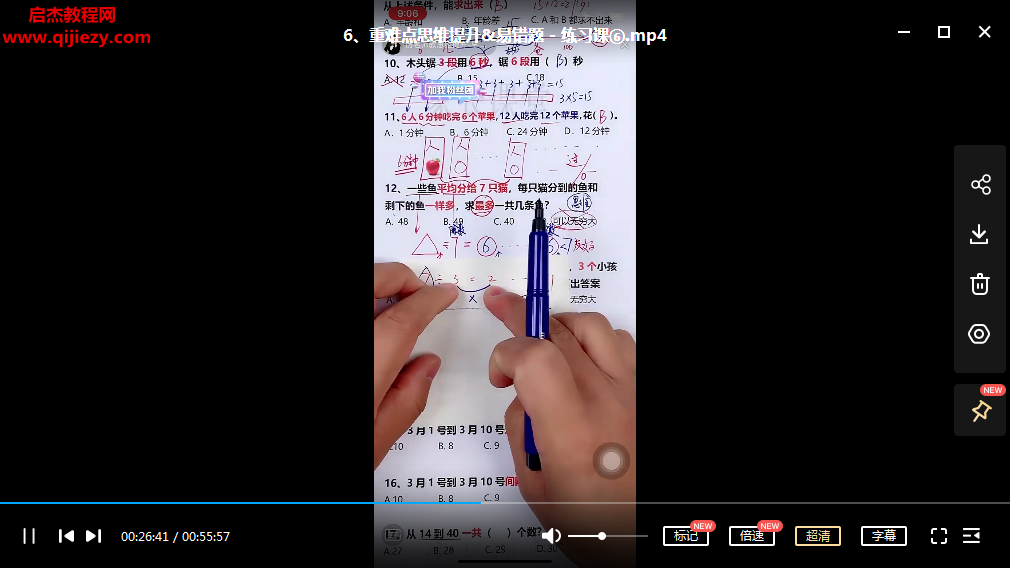 启杰教程网
www.qijiezy.com
6、重难点思维提升&易错题 - 练习课⑥.mp4
9:06
从上述条件，能求出来（B）
B. 年龄差
C. A 和 B 都求不出来
10、木头锯 3 段用 6 秒，锯 6 段用（ B ）秒
A. 12
B. 15
C. 18
加我粉丝团
3+3+3+3+3=15
3×5=15
11、6 人 6 分钟吃完 6 个苹果，12 人吃完 12 个苹果，花（ B ）。
A、1 分钟
B、6 分钟
C. 24 分钟
D、12 分钟
6分钟
12、一些鱼平均分给 7 只猫，每只猫分到的鱼和
剩下的鱼一样多，求最多一共几条鱼？
A. 48
B. 49
C. 40
可以无穷大
÷ 7 = 6
<7
，3 个小孩
÷ 5 = 2
出答案
无穷大
3 月 1 号到 3 月 10 号
.10
B. 8
C. 9
16、3 月 1 号到 3 月 10 号间
A.10
B. 8
C. 9
从 14 到 40 一共（ ）个数？
A.27
B. 28
C. 29
D. 30
NEW
00:26:41 / 00:55:57
标记
NEW
倍速
NEW
超清
字幕